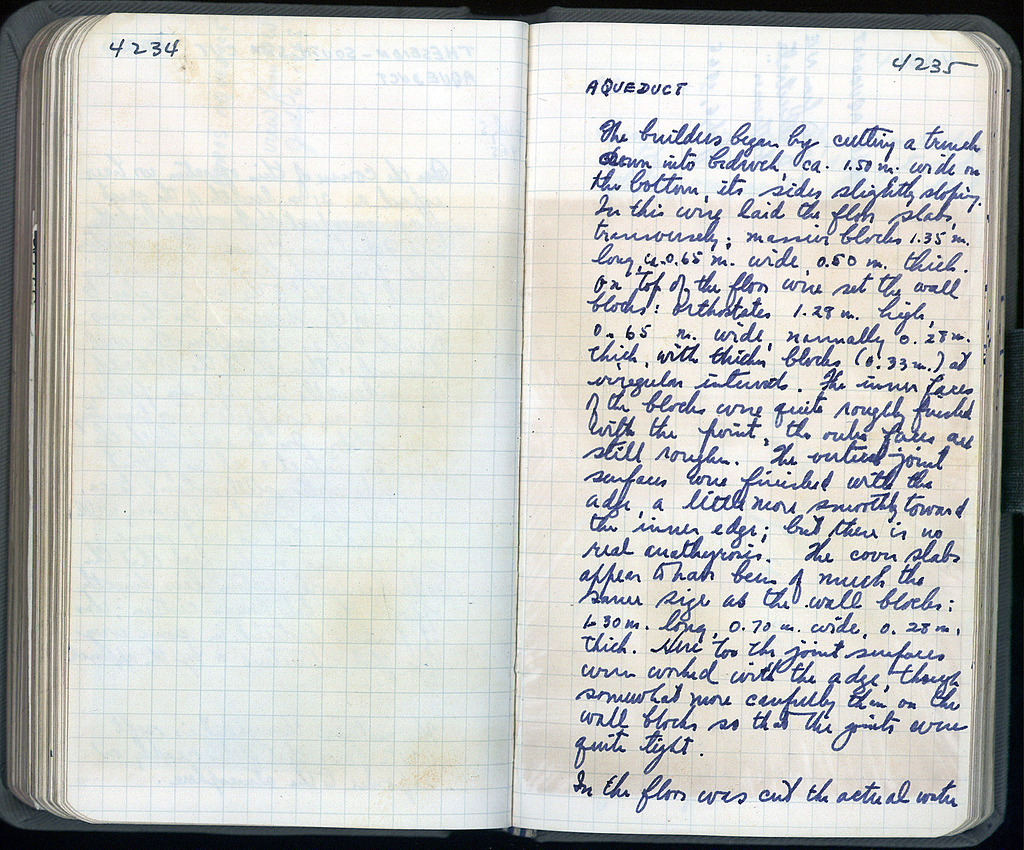 4234
4235
AQUEDUCT
The builders began by cutting a trench
down into bedrock, ca. 1.50 m. wide on
the bottom, its sides slightly sloping.
In this were laid the floor slabs,
transversely; massive blocks 1.35 m.
long, ca. 0.65 m. wide, 0.50 m. thick.
On top of the floor were set the wall
blocks: orthostates 1.28 m. high,
0.65 m. wide, normally 0.28 m.
thick, with thicker blocks (0.33 m.) at
irregular intervals. The inner faces
of the blocks were quite roughly finished
with the point, the outer faces are
still rougher. The vertical joint
surfaces were finished with the
adze, a little more smoothly toward
the inner edge; but there is no
real anathyrosis. The cover slabs
appear to have been of much the
same size as the wall blocks:
1.30 m. long, 0.70 m. wide, 0.28 m.
thick. Here too the joint surfaces
were worked with the adze, though
somewhat more carefully than on the
wall blocks so that the joints were
quite tight.
In the floor was cut the actual water